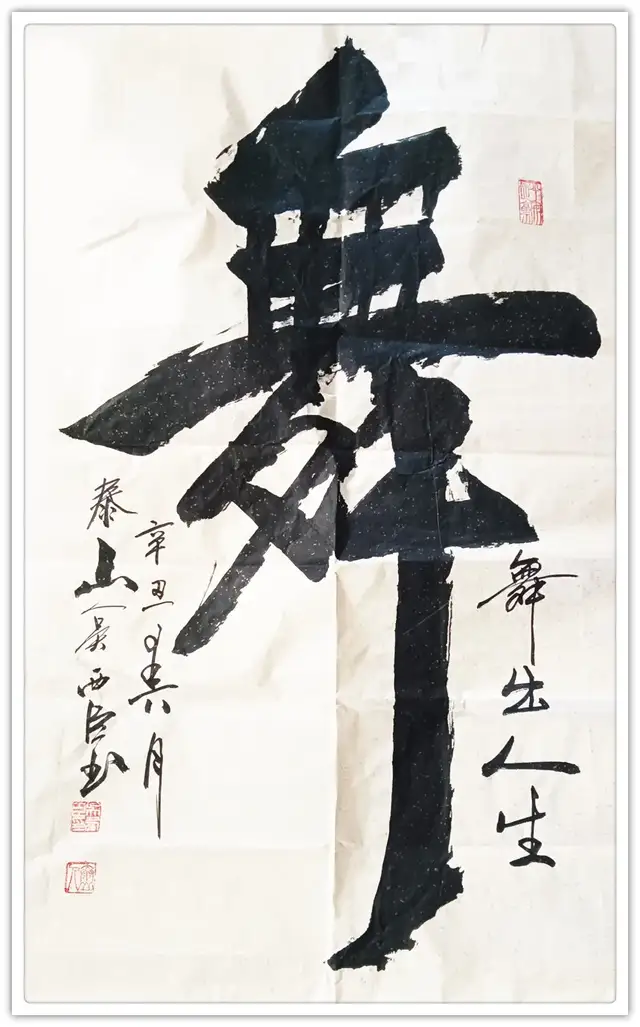 舞
舞出人生
辛丑年六月
泰山人吴西臣书